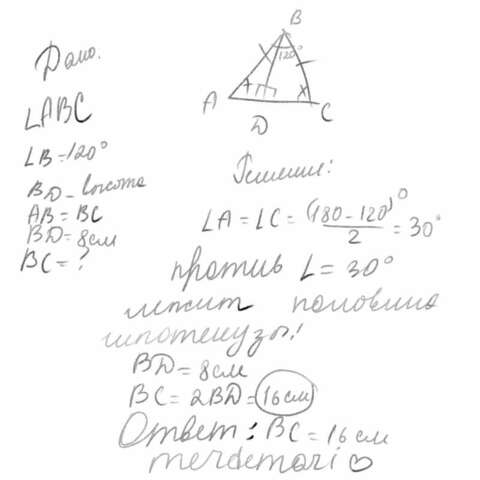 B
120°
A
C
D
Дано:
LABC
LB=120°
BD-высота
AB=BC
BD=8см
BC=?
Решение:
LA=LC=(180-120)°/2=30°
против L=30°
лежит половина
гипотенузы!
BD=8см
BC=2BD=16см
Ответ: BC=16см
merdemari♡